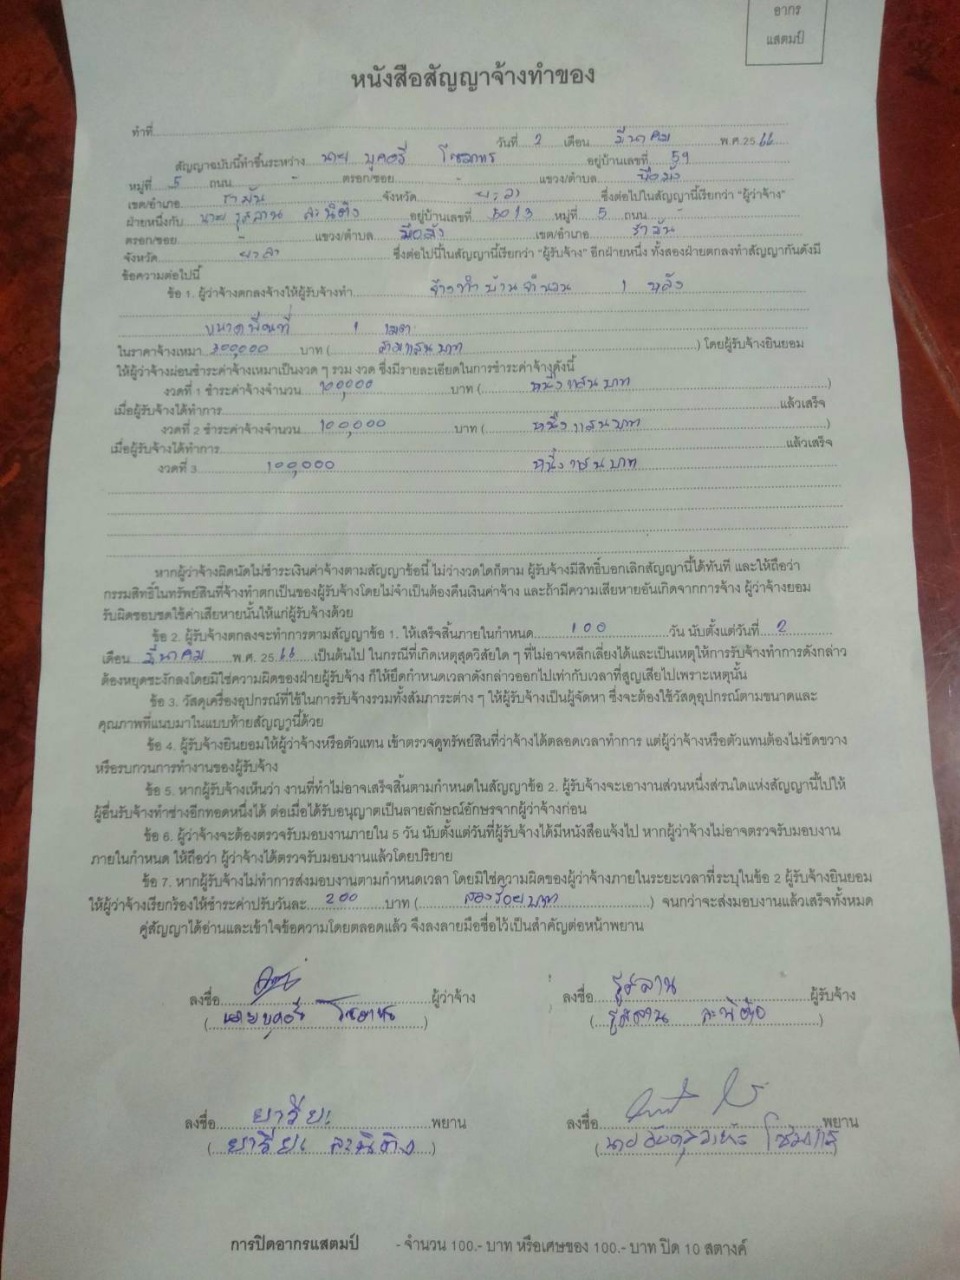 อากร
แสตมป์
หนังสือสัญญาจ้างทำของ
ทำที่
วันที่ 2 เดือน มีนาคม พ.ศ.2566
สัญญาฉบับนี้ทำขึ้นระหว่าง นาย บุคอรี อยู่บ้านเลขที่ 59
หมู่ที่ 5 ถนน - ตรอก/ซอย - แขวง/ตำบล
เขต/อำเภอ รามัน จังหวัด ยะลา ซึ่งต่อไปในสัญญานี้เรียกว่า "ผู้ว่าจ้าง"
ฝ่ายหนึ่งกับ นาย รุสลาน อยู่บ้านเลขที่ หมู่ที่ 5 ถนน
ตรอก/ซอย แขวง/ตำบล เขต/อำเภอ รามัน
จังหวัด ยะลา ซึ่งต่อไปนี้ในสัญญานี้เรียกว่า "ผู้รับจ้าง" อีกฝ่ายหนึ่ง ทั้งสองฝ่ายตกลงทำสัญญากันดังมี
ข้อความต่อไปนี้
ข้อ 1. ผู้ว่าจ้างตกลงจ้างให้ผู้รับจ้างทำ จ้างทำบ้านจำนวน 1 หลัง
ขนาดพื้นที่ 1
ในราคาจ้างเหมา 300,000 บาท ( สามแสนบาท ) โดยผู้รับจ้างยินยอม
ให้ผู้ว่าจ้างผ่อนชำระค่าจ้างเหมาเป็นงวด ๆ รวม งวด ซึ่งมีรายละเอียดในการชำระค่าจ้างดังนี้
งวดที่ 1 ชำระค่าจ้างจำนวน 100,000 บาท ( หนึ่งแสนบาท )
เมื่อผู้รับจ้างได้ทำการ แล้วเสร็จ
งวดที่ 2 ชำระค่าจ้างจำนวน 100,000 บาท ( หนึ่งแสนบาท )
เมื่อผู้รับจ้างได้ทำการ แล้วเสร็จ
งวดที่ 3 100,000 หนึ่งแสนบาท
หากผู้ว่าจ้างผิดนัดไม่ชำระเงินค่าจ้างตามสัญญาข้อนี้ ไม่ว่างวดใดก็ตาม ผู้รับจ้างมีสิทธิ์บอกเลิกสัญญานี้ได้ทันที และให้ถือว่า
กรรมสิทธิ์ในทรัพย์สินที่จ้างทำตกเป็นของผู้รับจ้างโดยไม่จำเป็นต้องคืนเงินค่าจ้าง และถ้ามีความเสียหายอันเกิดจากการจ้าง ผู้ว่าจ้างยอม
รับผิดชอบชดใช้ค่าเสียหายนั้นให้แก่ผู้รับจ้างด้วย
ข้อ 2. ผู้รับจ้างตกลงจะทำการตามสัญญาข้อ 1. ให้เสร็จสิ้นภายในกำหนด 100 วัน นับตั้งแต่วันที่ 2
เดือน มีนาคม พ.ศ. 2566 เป็นต้นไป ในกรณีที่เกิดเหตุสุดวิสัยใด ๆ ที่ไม่อาจหลีกเลี่ยงได้และเป็นเหตุให้การรับจ้างทำการดังกล่าว
ต้องหยุดชะงักลงโดยมิใช่ความผิดของฝ่ายผู้รับจ้าง ก็ให้ยืดกำหนดเวลาดังกล่าวออกไปเท่ากับเวลาที่สูญเสียไปเพราะเหตุนั้น
ข้อ 3. วัสดุเครื่องอุปกรณ์ที่ใช้ในการรับจ้างรวมทั้งสัมภาระต่าง ๆ ให้ผู้รับจ้างเป็นผู้จัดหา ซึ่งจะต้องใช้วัสดุอุปกรณ์ตามขนาดและ
คุณภาพที่แนบมาในแบบท้ายสัญญานี้ด้วย
ข้อ 4. ผู้รับจ้างยินยอมให้ผู้ว่าจ้างหรือตัวแทน เข้าตรวจดูทรัพย์สินที่ว่าจ้างได้ตลอดเวลาทำการ แต่ผู้ว่าจ้างหรือตัวแทนต้องไม่ขัดขวาง
หรือรบกวนการทำงานของผู้รับจ้าง
ข้อ 5. หากผู้รับจ้างเห็นว่า งานที่ทำไม่อาจเสร็จสิ้นตามกำหนดในสัญญาข้อ 2. ผู้รับจ้างจะเอางานส่วนหนึ่งส่วนใดแห่งสัญญานี้ไปให้
ผู้อื่นรับจ้างทำช่างอีกทอดหนึ่งได้ ต่อเมื่อได้รับอนุญาตเป็นลายลักษณ์อักษรจากผู้ว่าจ้างก่อน
ข้อ 6. ผู้ว่าจ้างจะต้องตรวจรับมอบงานภายใน 5 วัน นับตั้งแต่วันที่ผู้รับจ้างได้มีหนังสือแจ้งไป หากผู้ว่าจ้างไม่อาจตรวจรับมอบงาน
ภายในกำหนด ให้ถือว่า ผู้ว่าจ้างได้ตรวจรับมอบงานแล้วโดยปริยาย
ข้อ 7. หากผู้รับจ้างไม่ทำการส่งมอบงานตามกำหนดเวลา โดยมิใช่ความผิดของผู้ว่าจ้างภายในระยะเวลาที่ระบุในข้อ 2 ผู้รับจ้างยินยอม
ให้ผู้ว่าจ้างเรียกร้องให้ชำระค่าปรับวันละ 200 บาท ( สองร้อยบาท ) จนกว่าจะส่งมอบงานแล้วเสร็จทั้งหมด
คู่สัญญาได้อ่านและเข้าใจข้อความโดยตลอดแล้ว จึงลงลายมือชื่อไว้เป็นสำคัญต่อหน้าพยาน
ลงชื่อ ผู้ว่าจ้าง ลงชื่อ รุสลาน ผู้รับจ้าง
( นายบุคอรี ) ( รุสลาน )
ลงชื่อ ยารียะ พยาน ลงชื่อ พยาน
( ยารียะ ) ( นาย )
การปิดอากรแสตมป์ - จำนวน 100.- บาท หรือเศษของ 100.- บาท ปิด 10 สตางค์